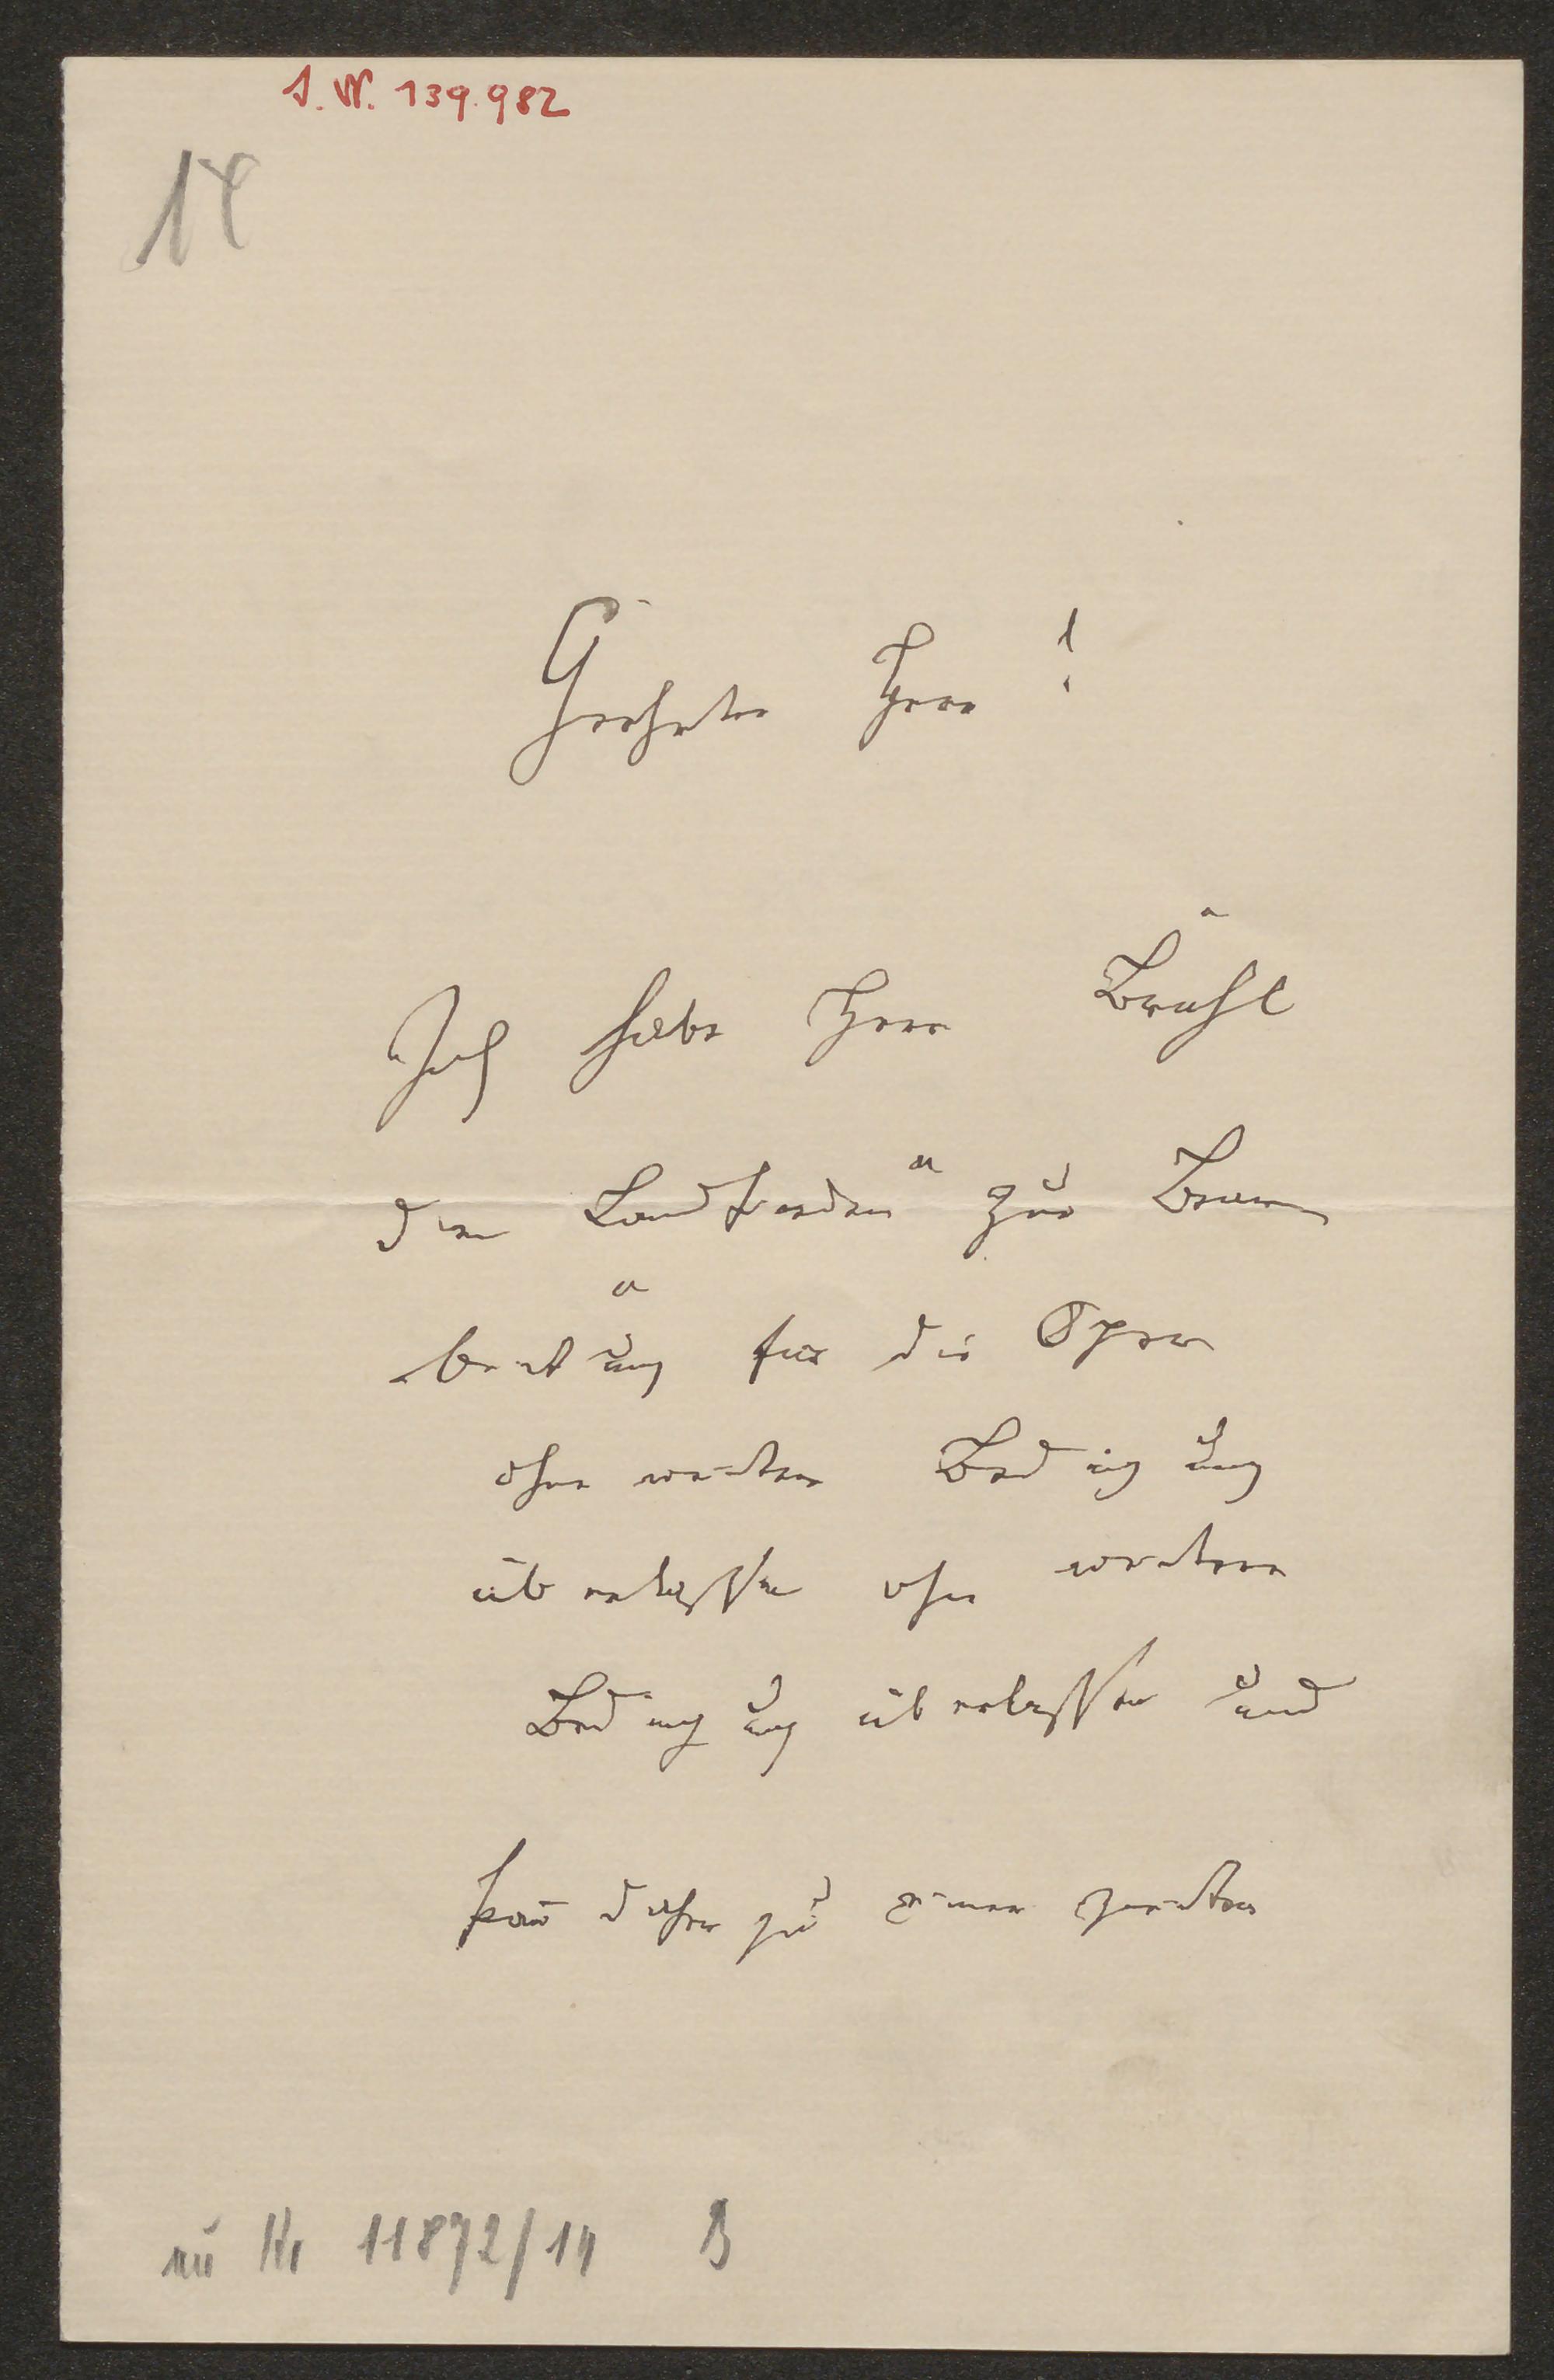 J. N. 139.982
14
Geehrter Herr!
Ich habe Herr Brühl
den Landfrieden" zur Bear-
beitung für die Oper
ohne weitere Bedingung
überlassen ohne weitere
Bedingung überlassen und
kann daher zu einer zweiten
zu Nr 11872/14 B